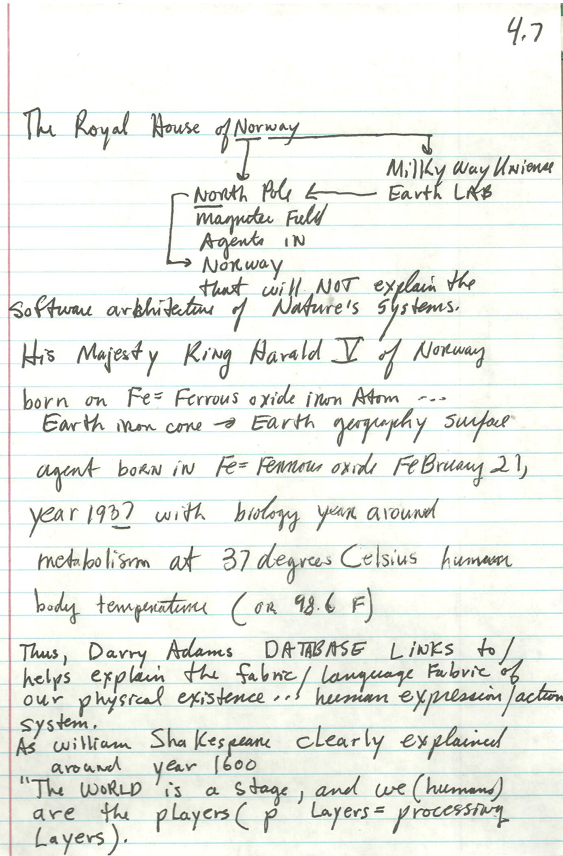 4.7
The Royal House of Norway
Milky Way Universe
North Pole ← Earth LAB
Magnetic Field
Agents IN
→ Norway
that will NOT explain the
software arkhitecture of Nature's systems.
His Majesty King Harald V of Norway
born on Fe= Ferrous oxide iron Atom ---
Earth iron core → Earth geography surface
agent born in Fe= Ferrous oxide FeBruary 21,
year 1937 with biology year around
metabolism at 37 degrees Celsius human
body temperature (OR 98.6 F)
Thus, Darry Adams DATABASE LINKS to/
helps explain the fabric/ language Fabric of
our physical existence ... human expression/action
system.
As william Shakespeare clearly explained
around year 1600
"The WORLD is a stage, and we (humans)
are the players ( p Layers = processing
Layers).